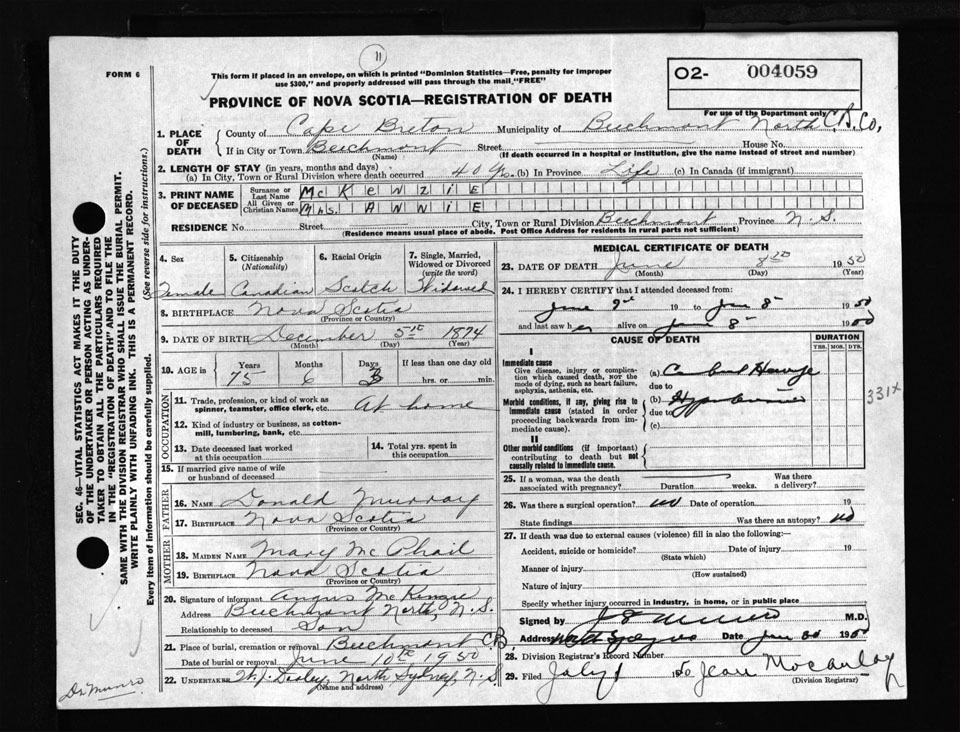 11
FORM 6
This form if placed in an envelope, on which is printed "Dominion Statistics—Free, penalty for improper
use $300," and properly addressed will pass through the mail "FREE"
O2- 004059
For use of the Department only
PROVINCE OF NOVA SCOTIA—REGISTRATION OF DEATH
1. PLACE OF DEATH County of Cape Breton Municipality of Beechmont North C.B. Co.
If in City or Town Beechmont Street House No.
(Name) (If death occurred in a hospital or institution, give the name instead of street and number)
2. LENGTH OF STAY (in years, months and days)
(a) In City, Town or Rural Division where death occurred 40 (b) In Province Life (c) In Canada (if immigrant)
3. PRINT NAME OF DECEASED Surname or Last Name McKENZIE
All Given or Christian Names Mrs. ANNIE
RESIDENCE No. Street City, Town or Rural Division Beechmont Province N.S.
(Residence means usual place of abode. Post Office Address for residents in rural parts not sufficient)
4. Sex 5. Citizenship (Nationality) 6. Racial Origin 7. Single, Married, Widowed or Divorced (write the word)
Female Canadian Scotch Widowed
8. BIRTHPLACE Nova Scotia
(Province or Country)
9. DATE OF BIRTH December 5th 1874
(Month) (Day) (Year)
10. AGE in Years Months Days If less than one day old
75 6 3 hrs. or min.
OCCUPATION
11. Trade, profession, or kind of work as spinner, teamster, office clerk, etc. At home
12. Kind of industry or business, as cotton-mill, lumbering, bank, etc.
13. Date deceased last worked at this occupation
14. Total yrs. spent in this occupation
15. If married give name of wife or husband of deceased
FATHER
16. NAME Donald Murray
17. BIRTHPLACE Nova Scotia
(Province or Country)
MOTHER
18. MAIDEN NAME Mary McPhail
19. BIRTHPLACE Nova Scotia
(Province or Country)
20. Signature of informant Angus McKenzie
Address Beechmont North, N.S.
Relationship to deceased Son
21. Place of burial, cremation or removal Beechmont C.B.
Date of burial or removal June 10th 1950
22. UNDERTAKER North Sydney, N.S
(Name and address)
MEDICAL CERTIFICATE OF DEATH
23. DATE OF DEATH June 8th 1950
(Month) (Day) (Year)
24. I HEREBY CERTIFY that I attended deceased from:
19 to June 8 1950
and last saw her alive on June 8 1950
CAUSE OF DEATH DURATION
YRS. MOS. DYS.
I
Immediate cause
Give disease, injury or complication which caused death, NOT the mode of dying, such as heart failure, asphyxia, asthenia, etc.
(a)
due to
Morbid conditions, if any, giving rise to immediate cause (stated in order proceeding backwards from immediate cause).
(b)
due to
(c)
331X
II
Other morbid conditions (if important) contributing to death but not causally related to immediate cause.
25. If a woman, was the death associated with pregnancy? Duration weeks. Was there a delivery?
26. Was there a surgical operation? no Date of operation 19
State findings Was there an autopsy? no
27. If death was due to external causes (violence) fill in also the following:—
Accident, suicide or homicide? Date of injury 19
(State which)
Manner of injury
(How sustained)
Nature of injury
Specify whether injury occurred in industry, in home, or in public place
Signed by M.D.
Address North Sydney N.S Date June 30 1950
28. Division Registrar's Record Number
29. Filed July 1 1950 Jean
(Division Registrar)
SEC. 46—VITAL STATISTICS ACT MAKES IT THE DUTY
OF THE UNDERTAKER OR PERSON ACTING AS UNDER-
TAKER TO OBTAIN ALL THE PARTICULARS REQUIRED
IN THE "REGISTRATION OF DEATH" AND TO FILE THE
SAME WITH THE DIVISION REGISTRAR WHO SHALL ISSUE THE BURIAL PERMIT.
WRITE PLAINLY WITH UNFADING INK. THIS IS A PERMANENT RECORD.
Every item of information should be carefully supplied. (See reverse side for instructions.)
Dr. Munro